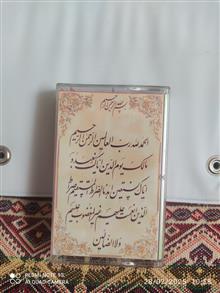 بسم الله الرحمن الرحیم
الحمد لله رب العالمین الرحمن الرحیم
مالک یوم الدین ایاک نعبد و
ایاک نستعین اهدنا الصراط المستقیم صراط
الذین انعمت علیهم غیر المغضوب علیهم
ولا الضالین
REDMI NOTE 10
AI QUAD CAMERA